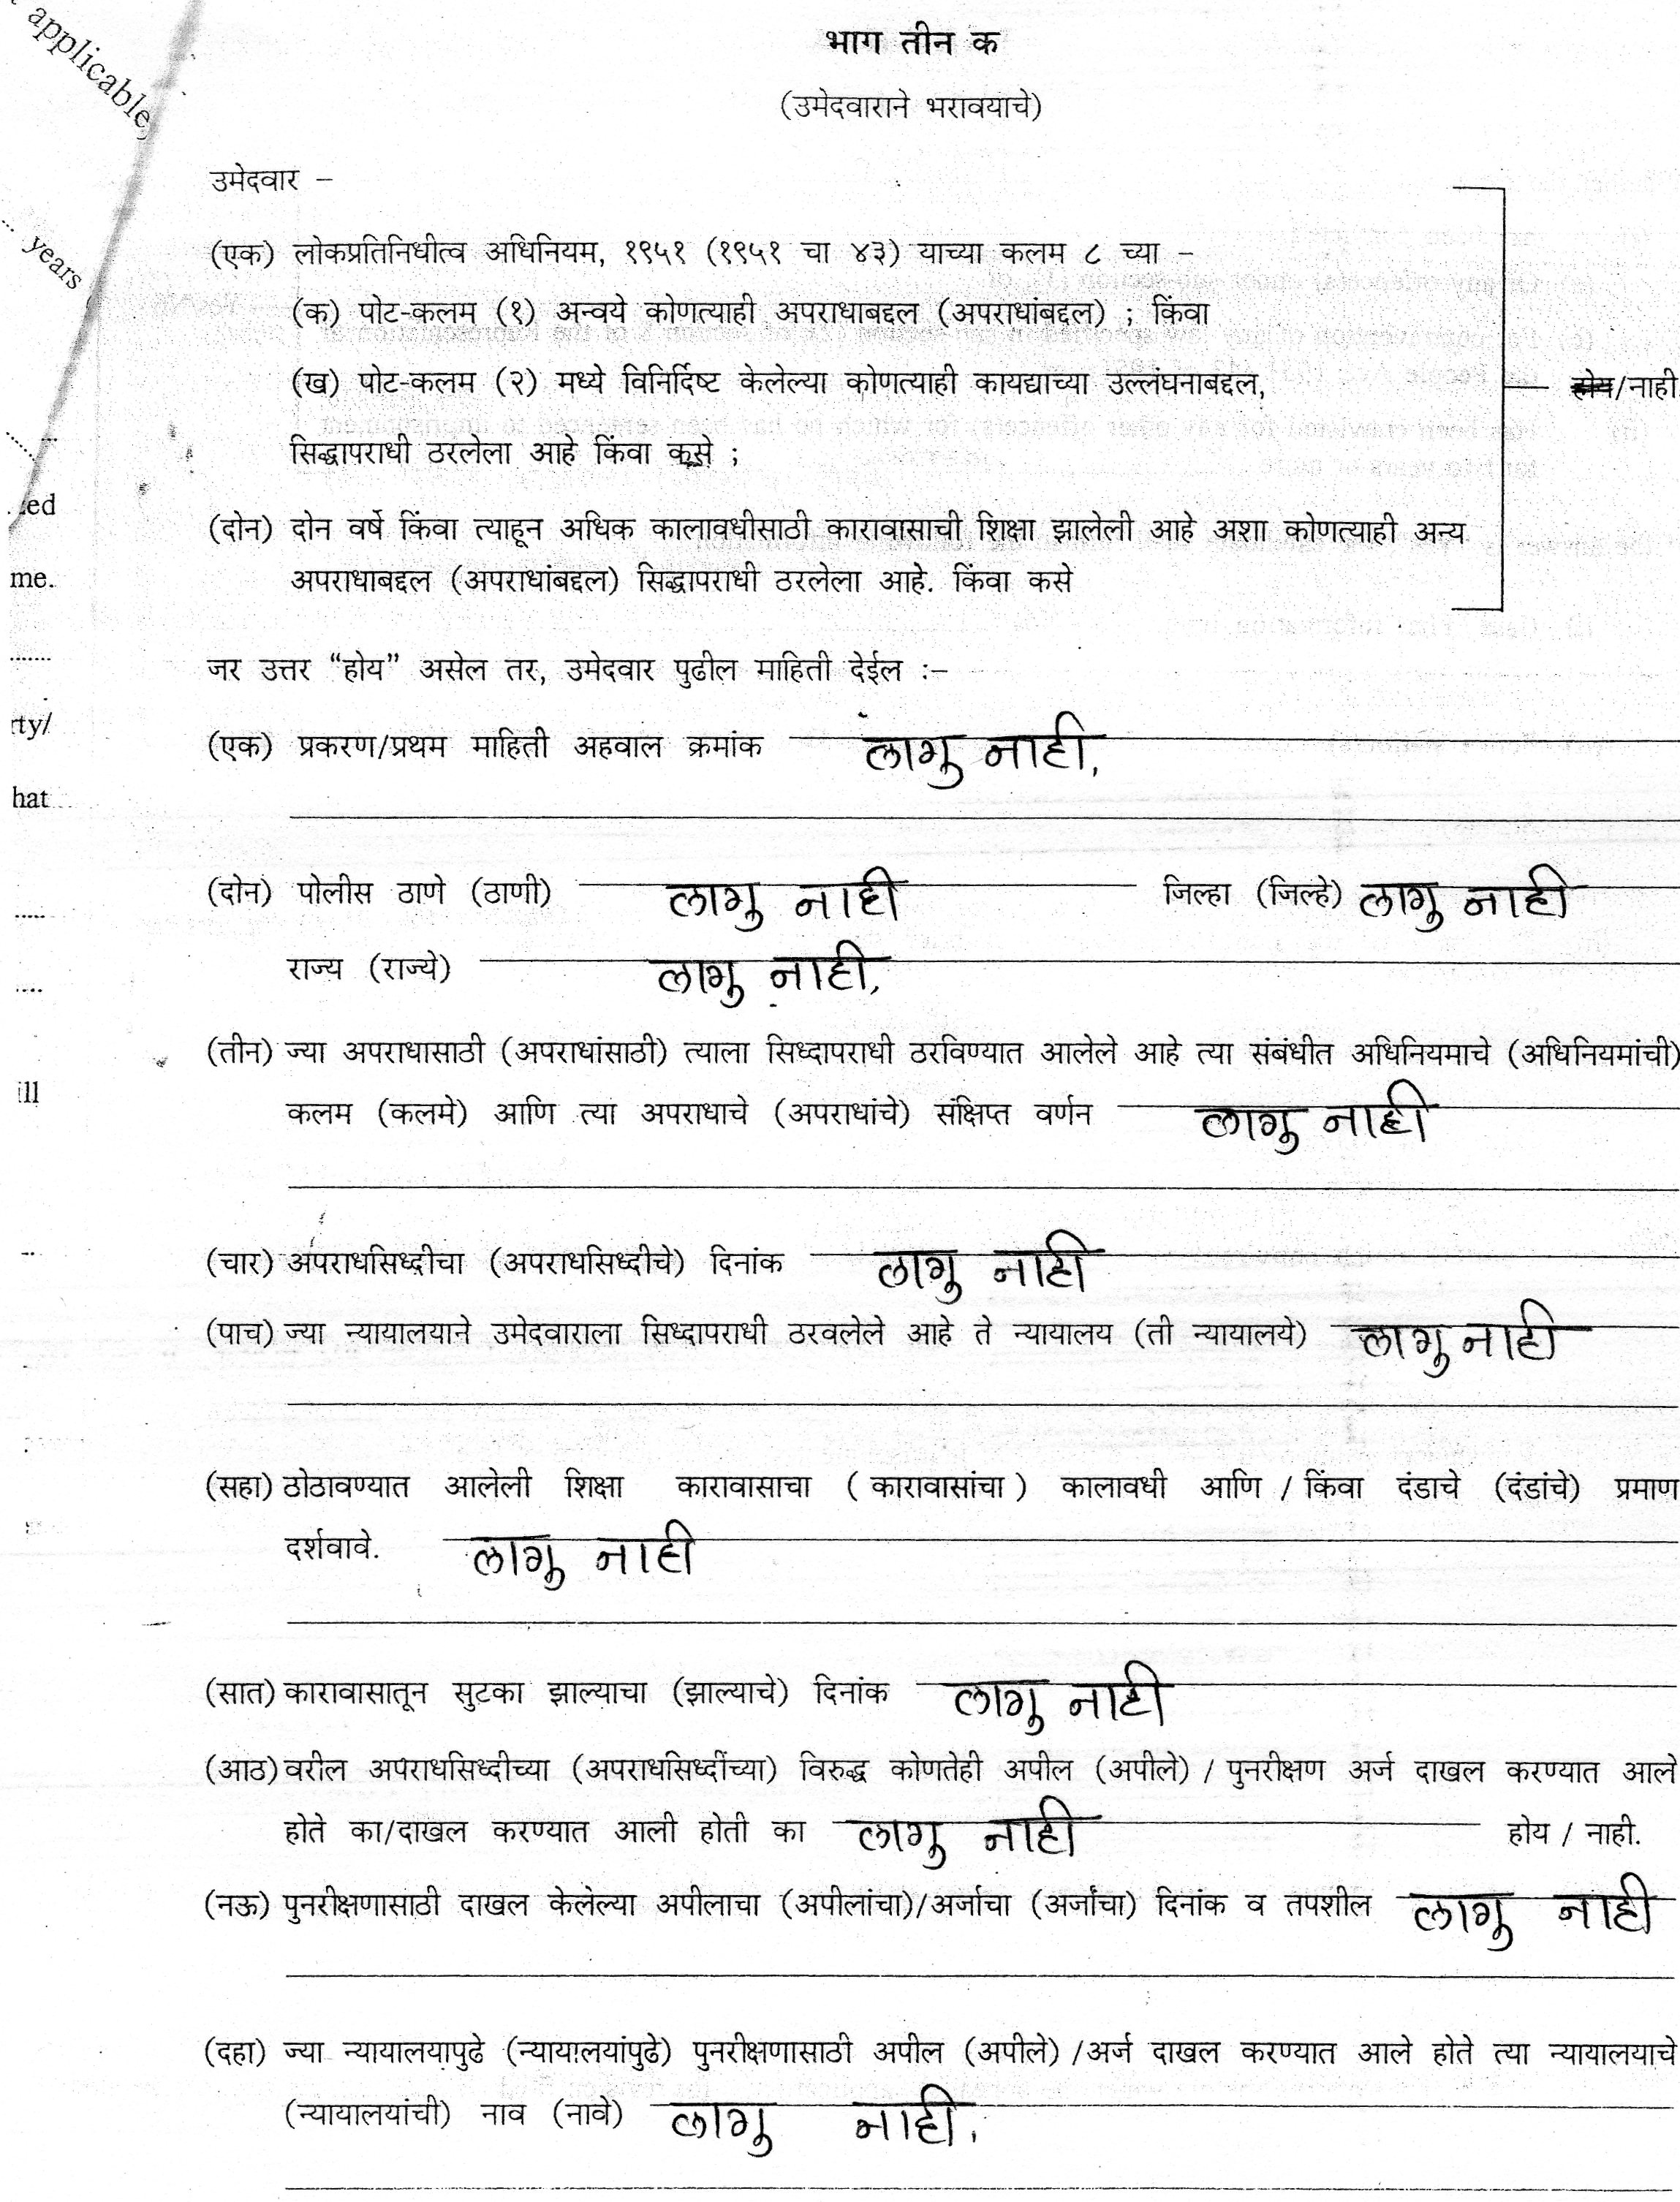 भाग तीन क
(उमेदवाराने भरावयाचे)
applicable,
years
उमेदवार –
(एक) लोकप्रतिनिधीत्व अधिनियम, १९५१ (१९५१ चा ४३) याच्या कलम ८ च्या –
(क) पोट-कलम (१) अन्वये कोणत्याही अपराधाबद्दल (अपराधांबद्दल) ; किंवा
(ख) पोट-कलम (२) मध्ये विनिर्दिष्ट केलेल्या कोणत्याही कायद्याच्या उल्लंघनाबद्दल,
होय/नाही
सिद्धापराधी ठरलेला आहे किंवा कसे ;
(दोन) दोन वर्षे किंवा त्याहून अधिक कालावधीसाठी कारावासाची शिक्षा झालेली आहे अशा कोणत्याही अन्य
अपराधाबद्दल (अपराधांबद्दल) सिद्धापराधी ठरलेला आहे. किंवा कसे
me.
जर उत्तर “होय” असेल तर, उमेदवार पुढील माहिती देईल :–
rty/
(एक) प्रकरण/प्रथम माहिती अहवाल क्रमांक लागु नाही.
hat
(दोन) पोलीस ठाणे (ठाणी) लागु नाही जिल्हा (जिल्हे) लागु नाही
राज्य (राज्ये) लागु नाही.
(तीन) ज्या अपराधासाठी (अपराधांसाठी) त्याला सिध्दापराधी ठरविण्यात आलेले आहे त्या संबंधीत अधिनियमाचे (अधिनियमांची)
ill
कलम (कलमे) आणि त्या अपराधाचे (अपराधांचे) संक्षिप्त वर्णन लागु नाही
(चार) अपराधसिध्दीचा (अपराधसिध्दीचे) दिनांक लागु नाही
(पाच) ज्या न्यायालयाने उमेदवाराला सिध्दापराधी ठरवलेले आहे ते न्यायालय (ती न्यायालये) लागु नाही
(सहा) ठोठावण्यात आलेली शिक्षा कारावासाचा ( कारावासांचा ) कालावधी आणि / किंवा दंडाचे (दंडांचे) प्रमाण
दर्शवावे. लागु नाही
(सात) कारावासातून सुटका झाल्याचा (झाल्याचे) दिनांक लागु नाही
(आठ) वरील अपराधसिध्दीच्या (अपराधसिध्दींच्या) विरुद्ध कोणतेही अपील (अपीले) / पुनरीक्षण अर्ज दाखल करण्यात आले
होते का/दाखल करण्यात आली होती का लागु नाही होय / नाही.
(नऊ) पुनरीक्षणासाठी दाखल केलेल्या अपीलाचा (अपीलांचा)/अर्जाचा (अर्जांचा) दिनांक व तपशील लागु नाही
(दहा) ज्या न्यायालयापुढे (न्यायालयांपुढे) पुनरीक्षणासाठी अपील (अपीले) /अर्ज दाखल करण्यात आले होते त्या न्यायालयाचे
(न्यायालयांची) नाव (नावे) लागु नाही.